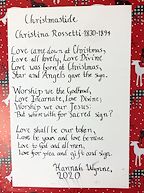 Christmastide
Christina Rossetti 1830-1894
Love came down at Christmas,
Love all lovely, Love Divine
Love was born at Christmas,
Star and Angels gave the sign.
Worship we the Godhead,
Love Incarnate, Love Divine;
Worship we our Jesus:
But wherewith for Sacred sign?
Love shall be our token,
Love be yours and love be mine
Love to God and all men,
Love for plea and gift and sign.
Hannah Wynne,
2020